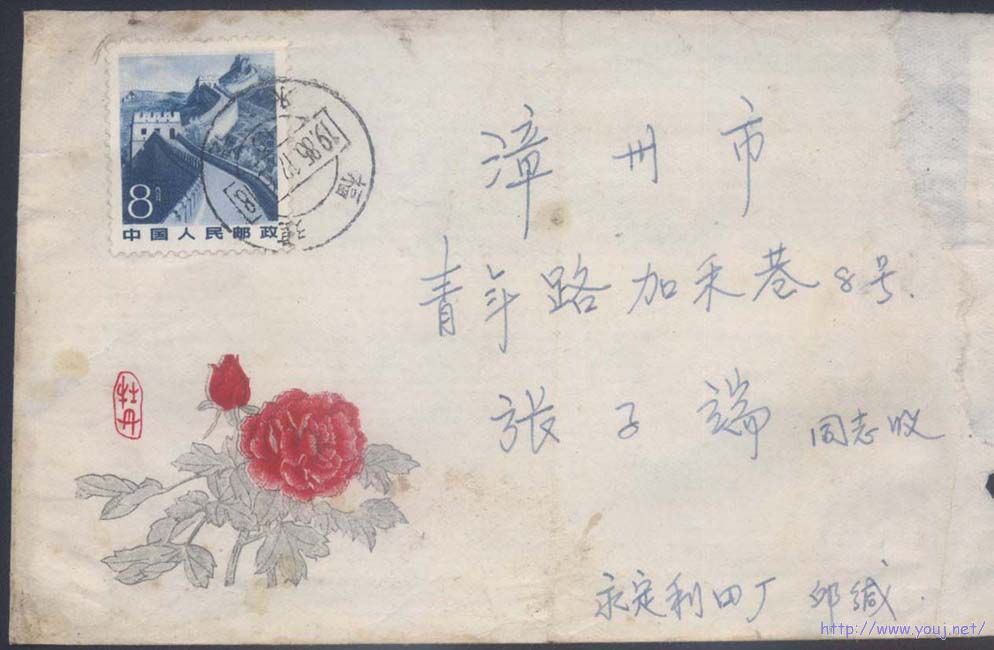 8分
中国人民邮政
福建
漳州市
青年路加禾巷8号.
张子端 同志收
永定利田厂 邱缄
http://www.youj.net/